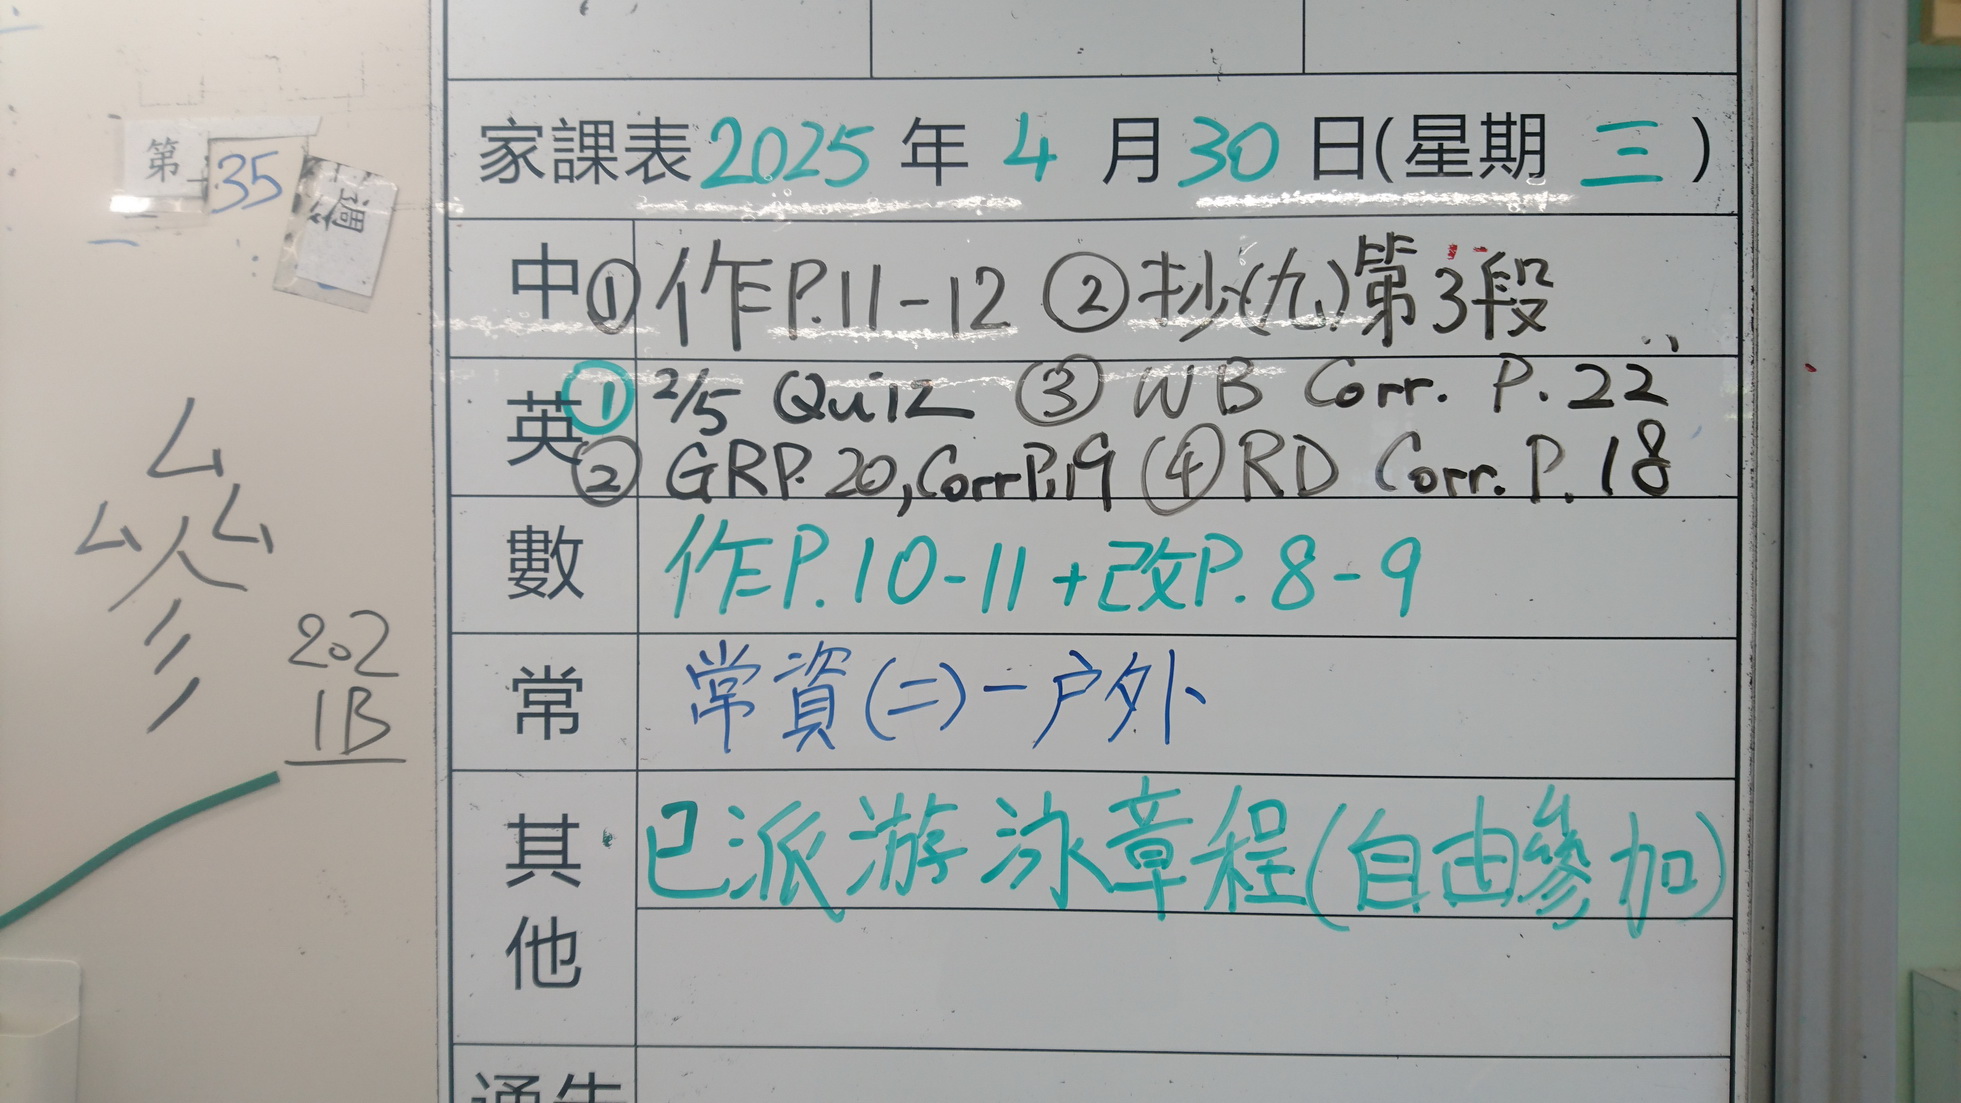 第 35 週
家課表 2025 年 4 月 30 日(星期 三)
中 ① 作P.11-12 ② 抄(九)第3段
英 ① 2/5 Quiz ③ WB Corr. P.22
② GR P.20, Corr P.19 ④ RD Corr. P.18
數 作P.10-11+改P.8-9
常 常資(二)-户外
其他 已派游泳章程(自由參加)
參
202
1B
通告